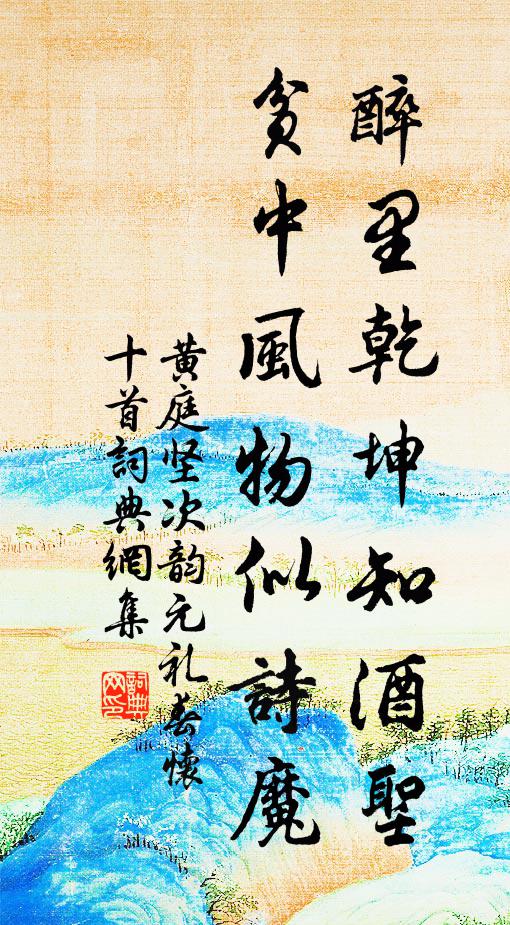 醉里乾坤知酒聖
貧中風物似詩魔
黄庭坚次韵元礼春懷
十首詞典網集
詞典網印